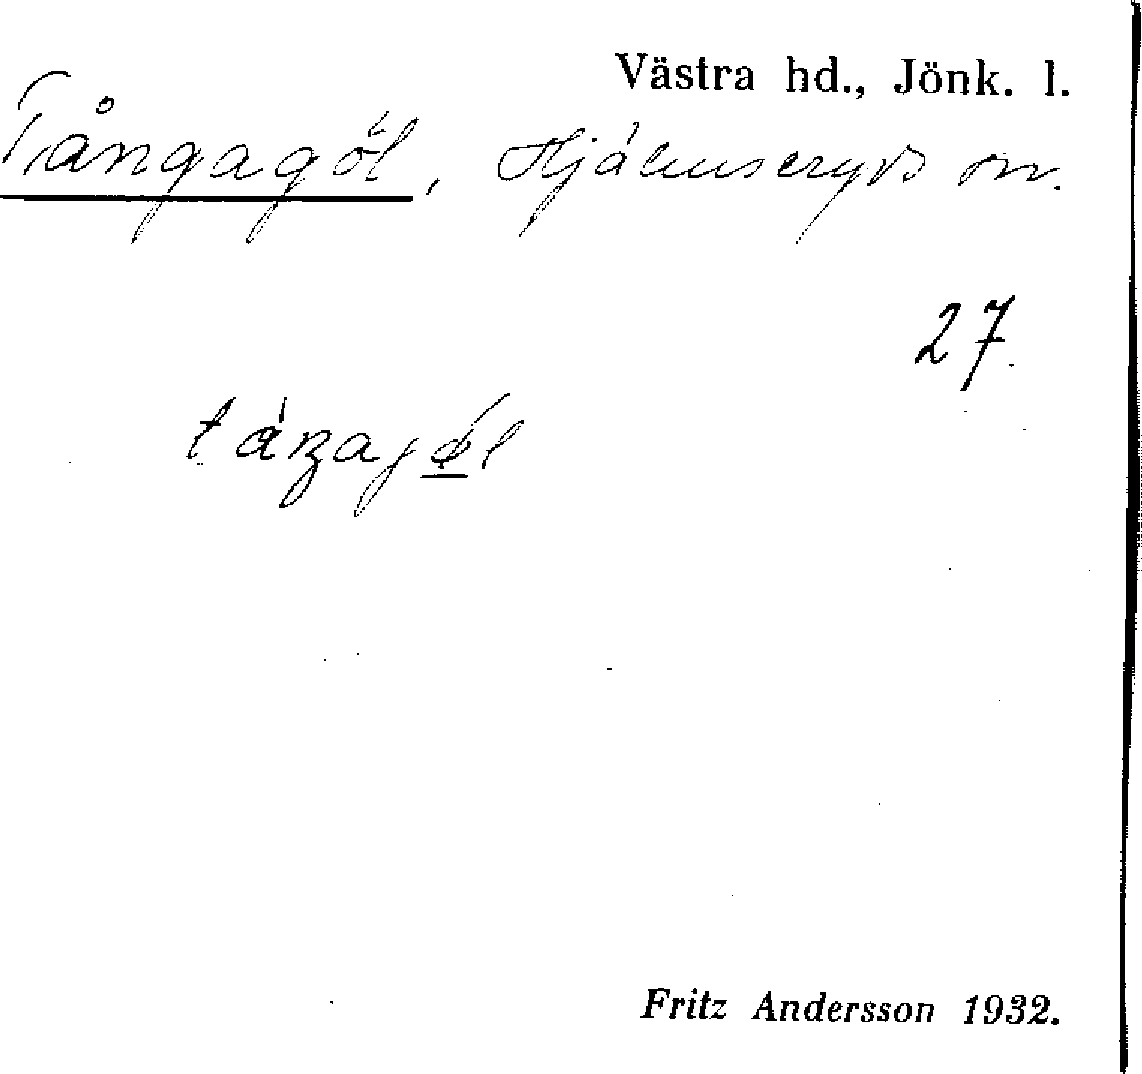 Västra hd., Jönk. l.
Tångagöl, Hjälmseryds sn.
27.
Fritz Andersson 1932.